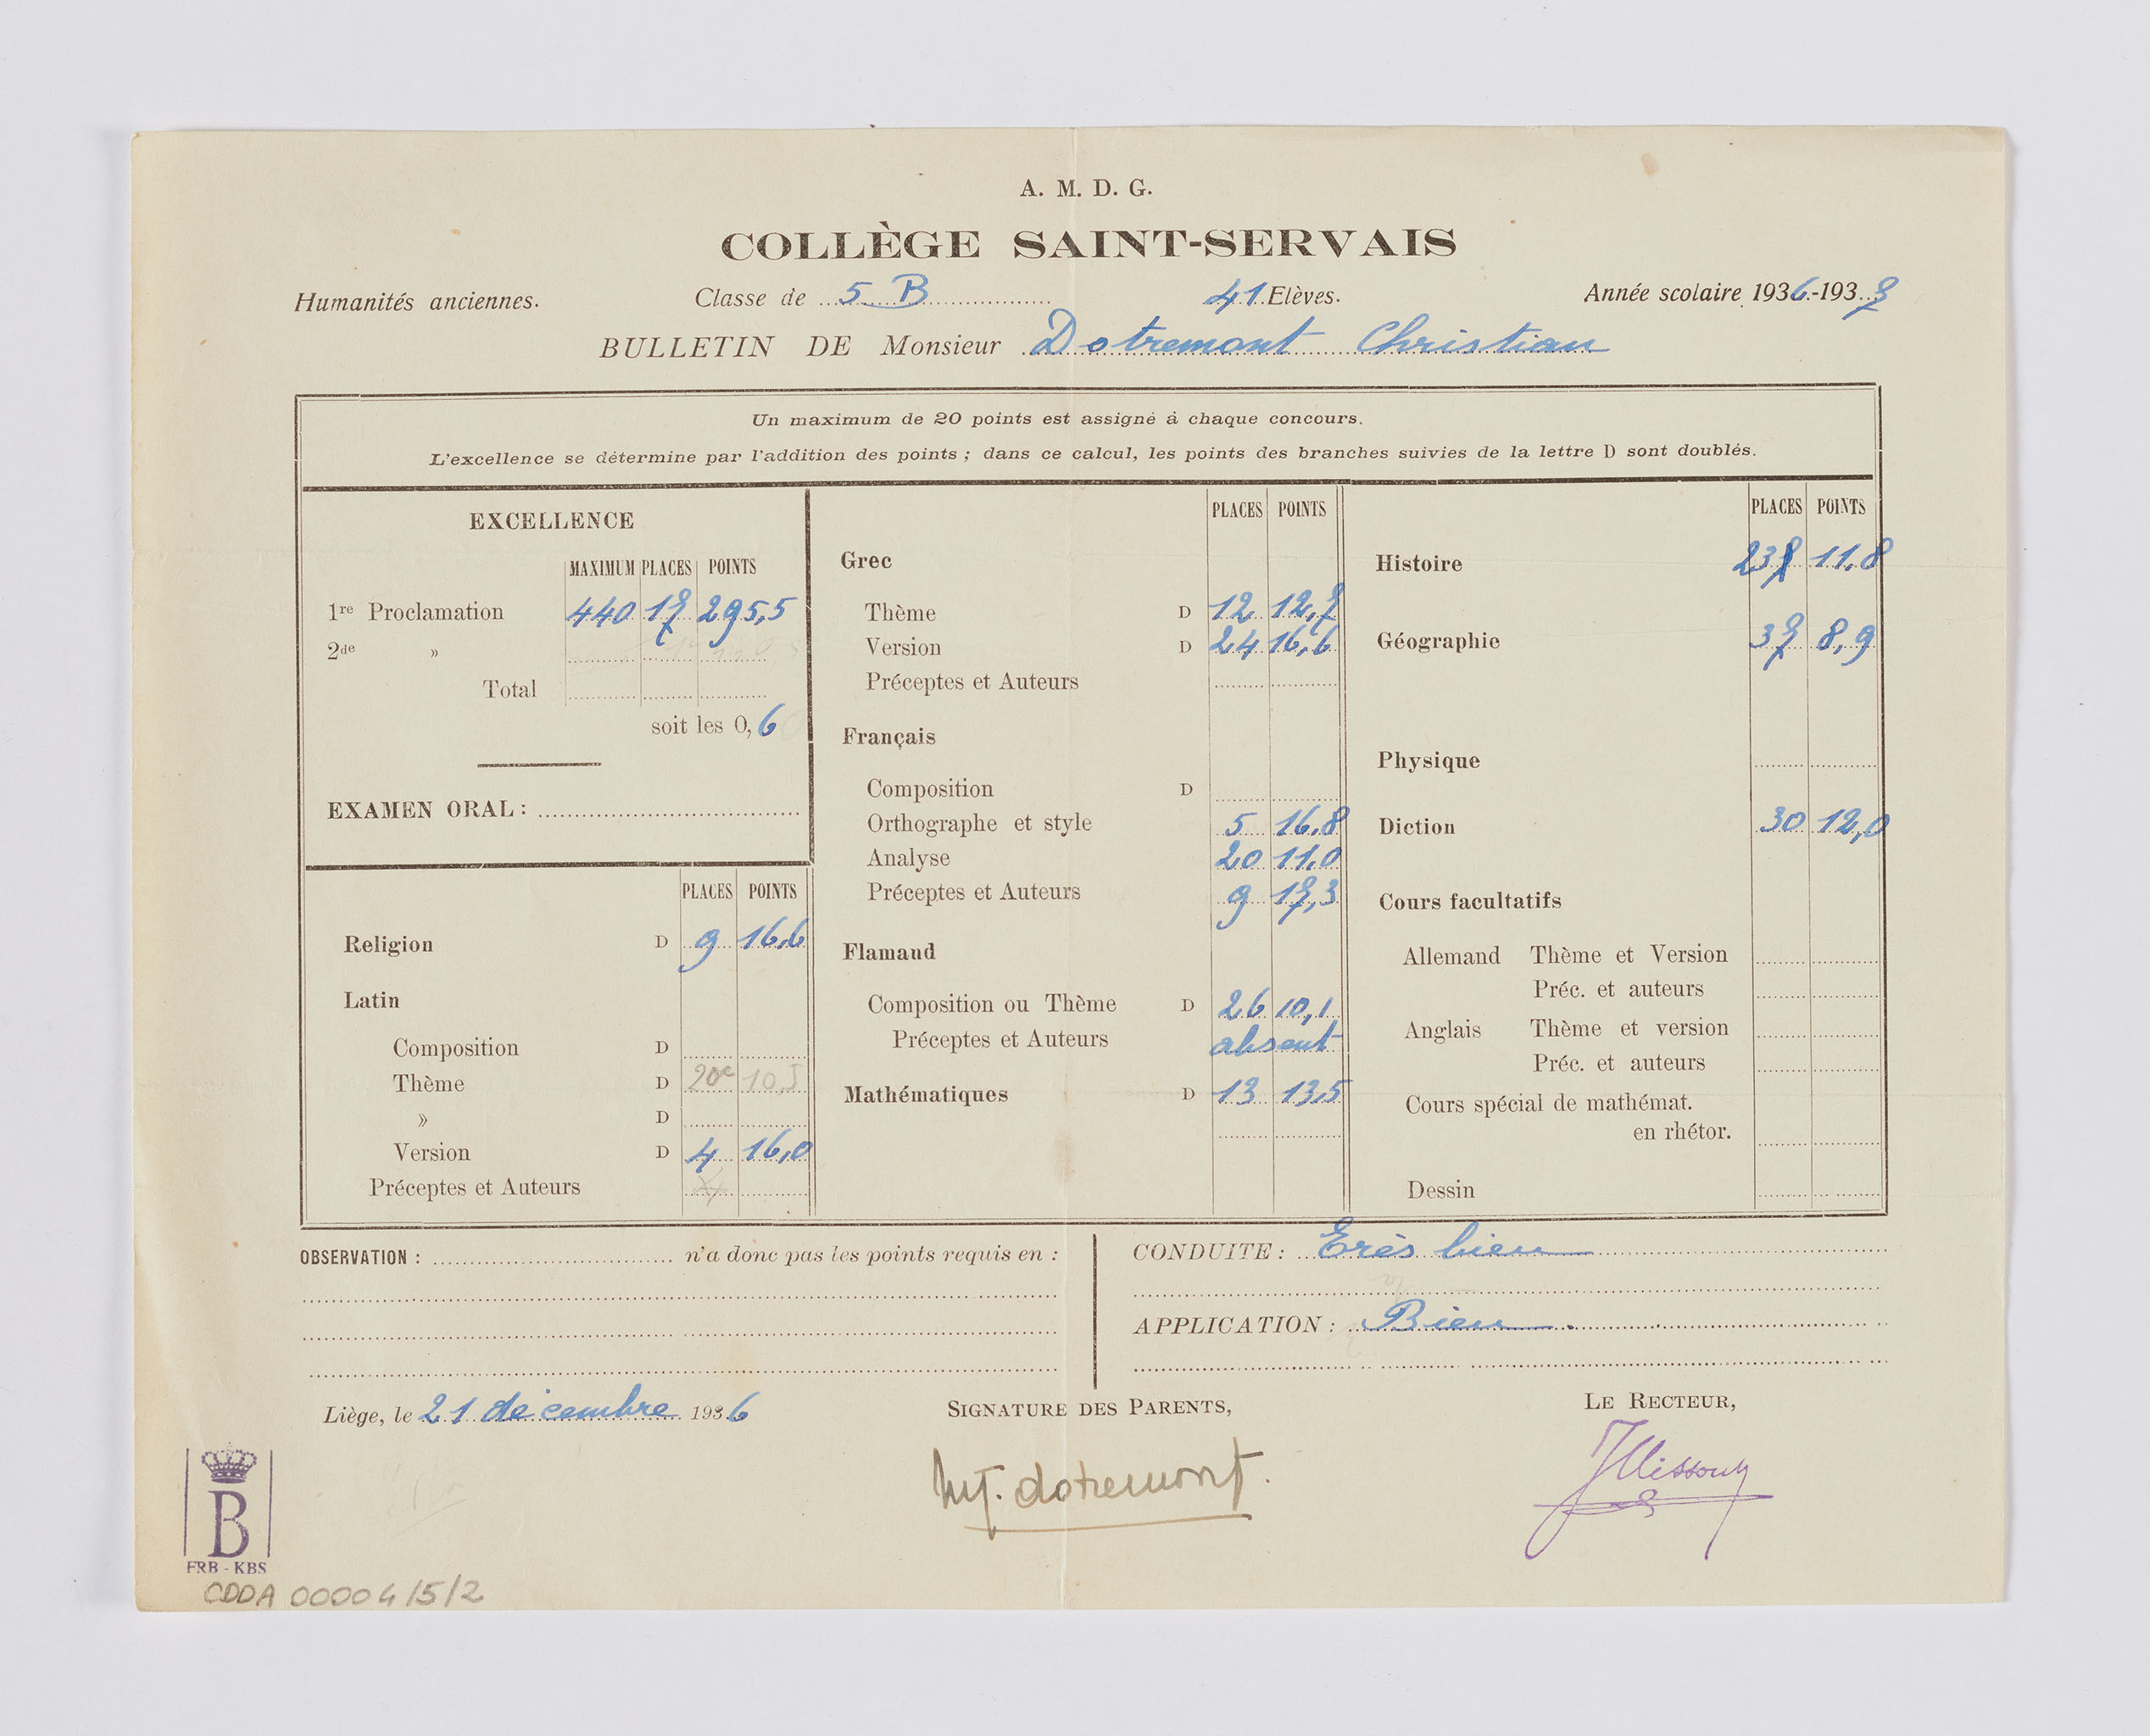 A. M. D. G.
COLLÈGE SAINT-SERVAIS
Humanités anciennes. Classe de 5 B 41 Elèves. Année scolaire 1936-1937
BULLETIN DE Monsieur Dotremont Christian
Un maximum de 20 points est assigné à chaque concours.
L'excellence se détermine par l'addition des points ; dans ce calcul, les points des branches suivies de la lettre D sont doublés.
EXCELLENCE
MAXIMUM PLACES POINTS
1re Proclamation 440 17 295,5
2de »
Total
soit les 0,6
EXAMEN ORAL :
PLACES POINTS
Religion D 9 16,6
Latin
Composition D
Thème D 20e 10,5
» D
Version D 4 16,0
Préceptes et Auteurs
PLACES POINTS
Grec
Thème D 12 12,7
Version D 24 16,6
Préceptes et Auteurs
Français
Composition D
Orthographe et style 5 16,8
Analyse 20 11,0
Préceptes et Auteurs 9 17,3
Flamand
Composition ou Thème D 26 10,1
Préceptes et Auteurs absent
Mathématiques D 13 13,5
PLACES POINTS
Histoire 23 11,8
Géographie 37 8,9
Physique
Diction 30 12,0
Cours facultatifs
Allemand Thème et Version
Préc. et auteurs
Anglais Thème et version
Préc. et auteurs
Cours spécial de mathémat.
en rhétor.
Dessin
OBSERVATION : n'a donc pas les points requis en :
CONDUITE : Très bien
APPLICATION : Bien
Liège, le 21 décembre 1936
SIGNATURE DES PARENTS,
LE RECTEUR,
dotremont.
B
FRB - KBS
CDDA 00004/5/2